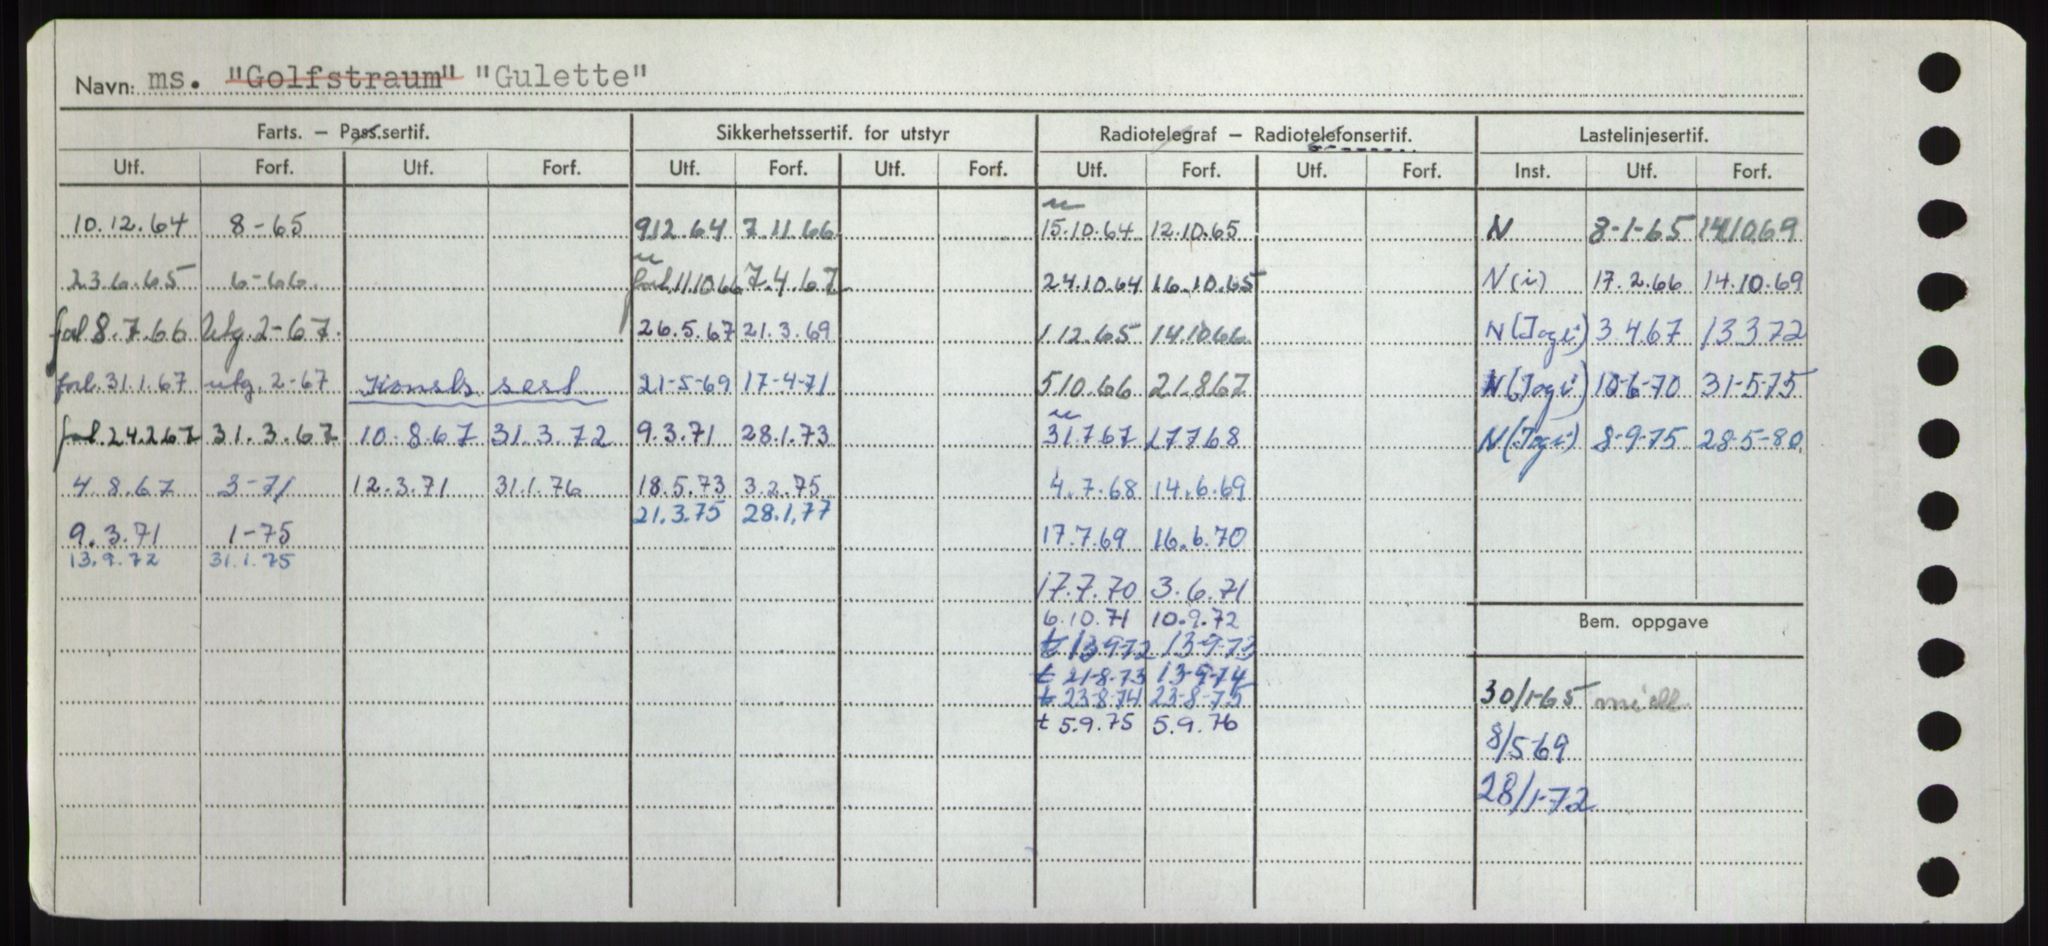 Navn: ms. "Golfstraum" "Gulette"
Farts. – Pass.sertif. Sikkerhetssertif. for utstyr Radiotelegraf – Radiotelefonsertif. Lastelinjesertif.
Utf. Forf. Utf. Forf. Utf. Forf. Utf. Forf. Utf. Forf. Utf. Forf. Inst. Utf. Forf.
10.12.64 8-65 9.12.64 7.11.66 15.10.64 12.10.65 N 8-1-65 14.10.69
23.6.65 6-66. forl 11.10.66 7.4.67 24.10.64 16.10.65 N(i) 17.2.66 14.10.69
forl 8.7.66 Utg. 2-67. 26.5.67 21.3.69 1.12.65 14.10.66 N(Jogi) 3.4.67 13.3.72
forl. 31.1.67 utg. 2-67 21-5-69 17-4-71 5.10.66 21.8.67 N(Jogi) 10-6-70 31-5-75
forl. 24.2.67 31.3.67 10.8.67 31.3.72 9.3.71 28.1.73 31.7.67 17.7.68 N(Jogi) 8-9-75 28-5-80.
4.8.67 3-71 12.3.71 31.1.76 18.5.73 3.2.75 4.7.68 14.6.69
21.3.75 28.1.77
9.3.71 1-75 17.7.69 16.6.70
13.9.72 31.1.75
17.7.70 3.6.71
6.10.71 10.9.72 Bem. oppgave
t 13-9-72 13-9-73
t 21-8-73 13-9-74
t 23-8-74 23-8-75 30/1-65
t 5.9.75 5.9.76
8/5-69
28/1-72